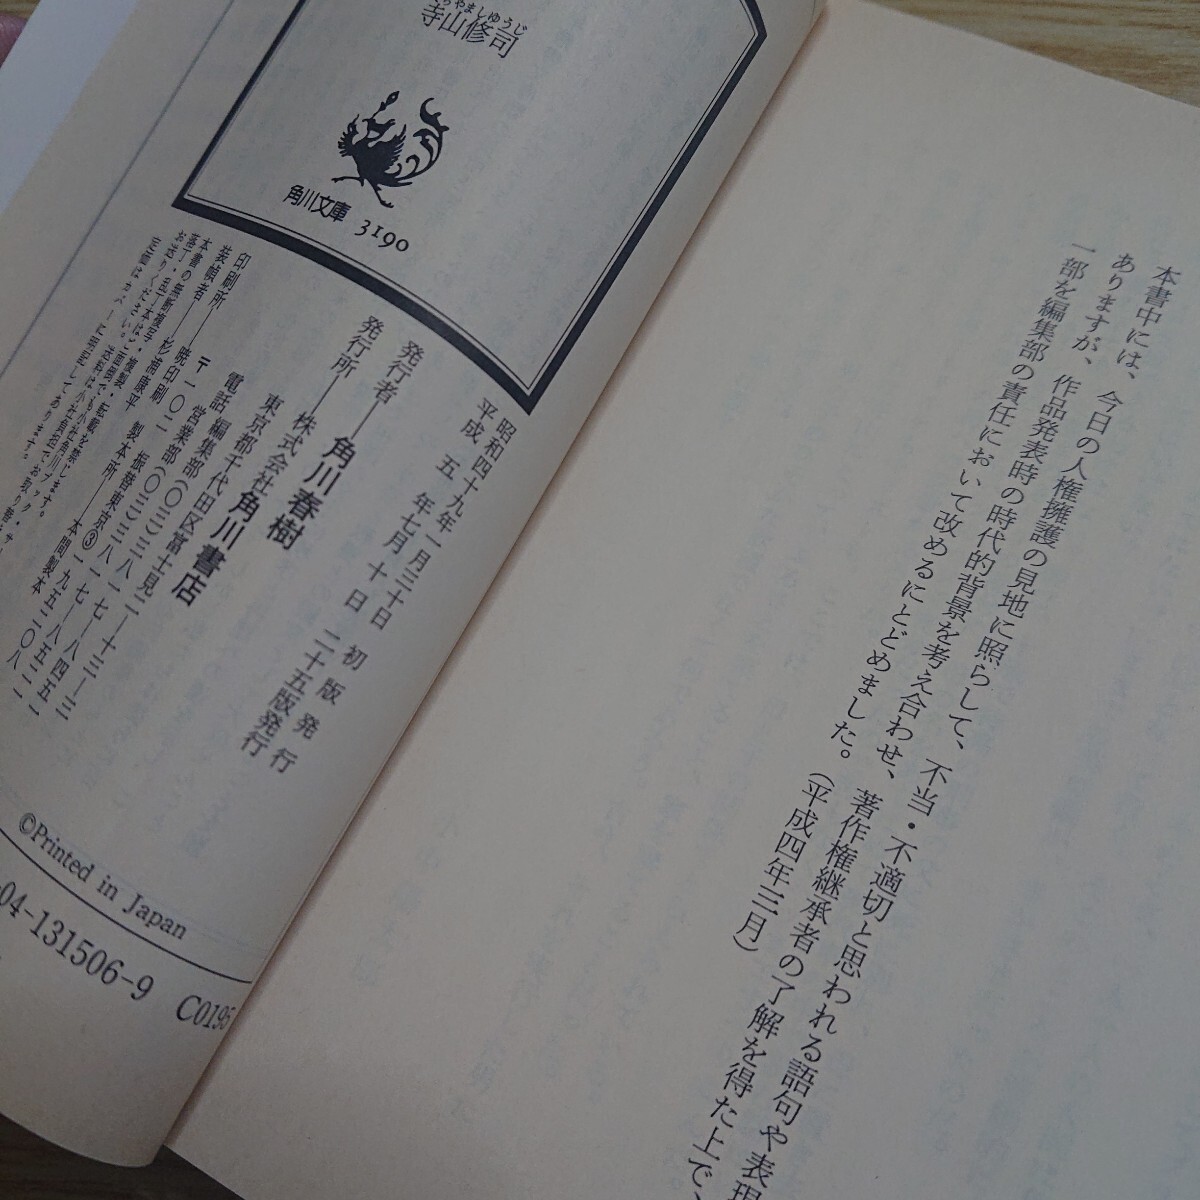 本書中には、今日の人権擁護の見地に照らして、不当・不適切と思われる語句や表現
ありますが、作品発表時の時代的背景を考え合わせ、著作権継承者の了解を得た上で、
一部を編集部の責任において改めるにとどめました。（平成四年三月）
やましゅうじ
寺山修司
角川文庫 3190
昭和四十九年一月三十日 初版発行
平成 五 年七月 十 日 二十五版発行
発行者―角川春樹
発行所―株式会社角川書店
東京都千代田区富士見二―十三―三
電話 編集部(〇三)三八一七―八四五一
営業部(〇三)三八一七―八五二一
〒一〇二 振替東京③一九五二〇八
印刷所―暁印刷 製本所―本間製本
装幀者―杉浦康平
本書の無断複写・複製・転載を禁じます。
落丁・乱丁本は
定価はカバーに明記してあります。
©Printed in Japan
04-131506-9 C0195